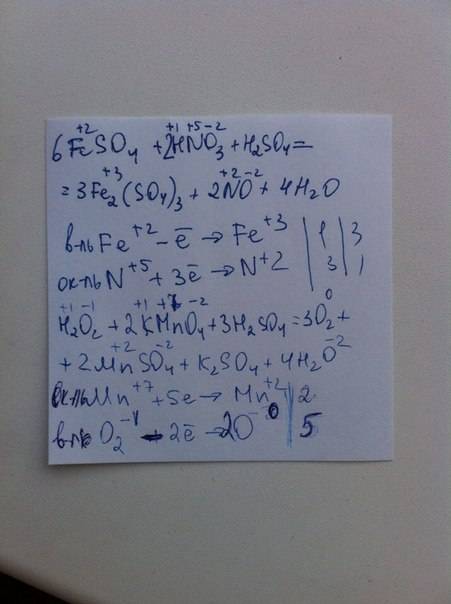 6Fe⁺²SO₄ + 2H⁺¹N⁺⁵O₃⁻² + H₂SO₄ =
= 3Fe₂⁺³(SO₄)₃ + 2N⁺²O⁻² + 4H₂O
в-ль Fe⁺² - ē → Fe⁺³ | 1 | 3
ок-ль N⁺⁵ + 3ē → N⁺² | 3 | 1
H₂⁺¹O₂⁻¹ + 2K⁺¹Mn⁺⁷O₄⁻² + 3H₂SO₄ = 3O₂⁰ +
+ 2Mn⁺²SO₄⁻² + K₂SO₄ + 4H₂O⁻²
ок-ль Mn⁺⁷ + 5e → Mn⁺² | 2
в-ль O₂⁻¹ - 2ē → 2O⁰ | 5